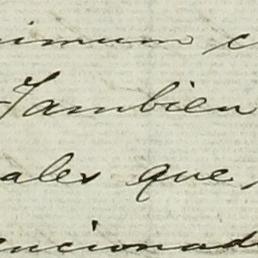 nimum c
Tambien
ales que
encionad